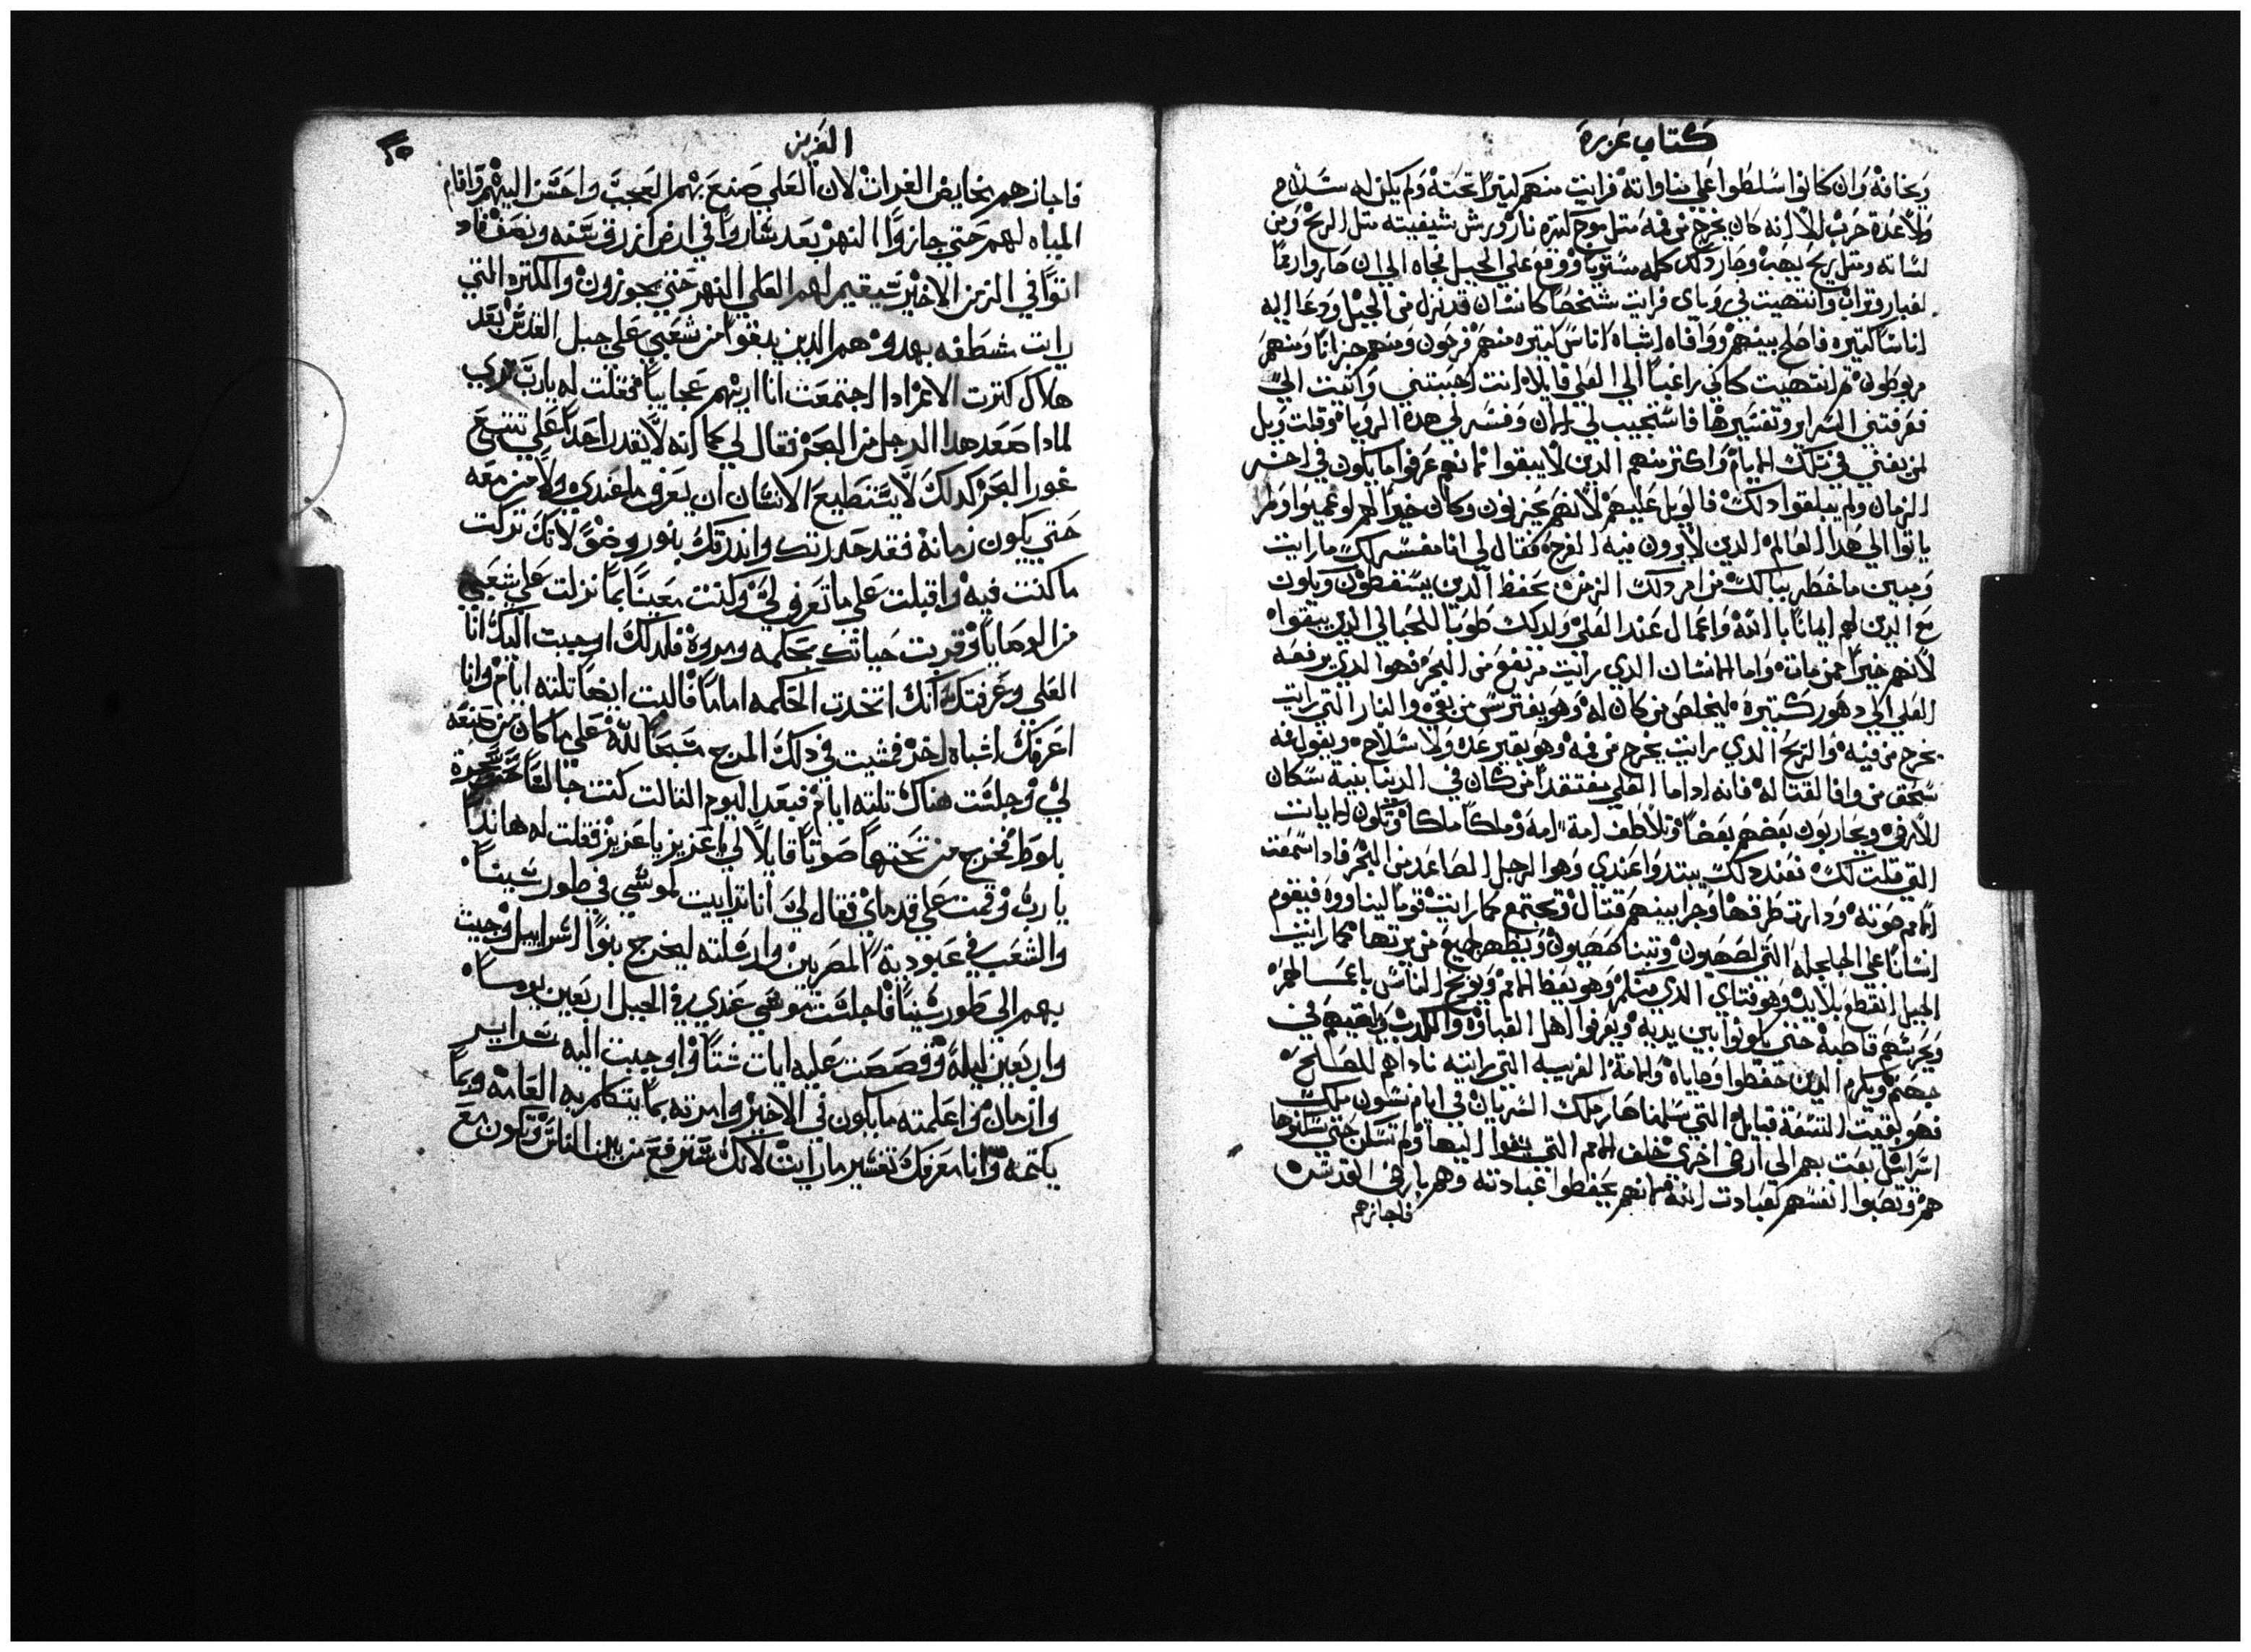 كتاب عزره
ومخافة وان كانوا اسلطوا علي مناواته فرايت منهم كثيرا تحته ولم يكن له سلاح
ولا عدة حرب الا انه كان يخرج من فيه متل موج كتيره نار ورش شفيته متل الريح ومن
لسانه ومتل ريح يهب وصار دلك كله مستويا ووقع علي الجبل تجاه الي ان صاروا رمما
لغبار وتراب وانتهيت في روياي فرايت شخصا كانسان قد نزل من الجبل ودعا اليه
اناسا كتيره فاصلح بينهم ووافاه اشباه اناس كتيره منهم فرحون ومنهم حزانا ومنهم
مربوطون تم انتهيت كاني راغبا الي العلي قايلا انت اهبتني واتيت الي
فعرفتني السراير وتفسيرها فاستجيب لي الان وفسر لي هده الرويا وقلت ويل
لمن يفني في تلك الايام واكتر منهم الدين لا يبقوا فانهم عرفوا ما يكون في اخر
الزمان ولم يبلغوا دلك فالويل عليهم لانهم يحزنون وكان خيرا لهم لو عميوا ولم
ياتوا الي هدا العالم الدين لا يرون فيه الفرح فقال لي انا مفسر لك ما رايت
ومبين ما خطر ببالك من امر دلك الزمن يحفظ الدين يسقطون ويكون
مع الدين لهم ايمانا بالله واعمال عند العلي ولدلك طوبا للحبالي الدين يبقواه
لانهم خيرا ممن مات واما الانسان الدي رايت مرتفع من البحر فهوا الدي يرفعه
العلي الي دهور كتيرة ليخلص من كان له وهو يفترس من بقي والنار التي رايت
يخرج من فيه والريح الدي رايت يخرج من فمه وهو بغير عده ولا سلاح ويقول فه
سحق من وافا لقتاله فانه ادا ما العلي مفتقدا من كان في الدنيا بنية سكان
الارض ويحاربون بعضهم بعضا وتلاطف امة امة وملكا ملكا وتكون الايات
التي قلت لك فعند دلك يبتدوا عندي وهوا الرجل الصاعد من البحر فادا سمعت
الامم صوته ودارت طرقها وجرا بينهم قتال وتجتمع كما رايت قوما ليناووه فيقوم
انسانا علي الجلجلة التي لصهيون وتبنا صهيون ويظهر لجميع من يرتها كما رايت
الجبل انقطع بلا يد وهو فتاي الدي متكلم وهو يعظ الامم ويوبخ الناس باعمالهم
ويحرسهم قاطبة حتي يكونوا بين يديه ويعرفوا اهل الغباوه والكدب ويلقيهم في
جهنم ويكرم الدين حفظوا وصاياه والامة الغريبه التي رايته ناداهم للصلح
فهو بقيت التسعة قبايل التي سلمناصار ملك السريان في ايام نشون ملك
اسرائيل بعت بهم الي ارض اخري خلف الامم التي نفوا اليها ولم تسكن حتي سكنوها
هم وتصبوا انفسهم لعبادت الله فانهم يحفظوا عبادته وهم بارض القدس
فاجازهم
العزيز
٢٥
فاجازهم بخايض الفرات لان العلي صنع بهم العجب واحسن اليهم واقام
المياه لهم حتي جازوا النهر بعد ساروا في ارض ازرق سنه ونصف فاد
اتوا في الزمن الاخير سيقيم لهم العلي النهر حتي يجوزون والكتره التي
رايت شطفه بهدوء هم الدين يبقوا من شعبي علي جبل القدس بعد
هلاك كترت الامم ادا اجتمعت انا اريهم عجايبا فقلت له يا رب تري
لمادا صعد هدا الرجل من البحر فقال لي كما انه لا يقدر احدا علي تتبع
غور البحر كدلك لا يستطيع الانسان ان يعرف ما عندي ولا من معه
حتي يكون زمانه فقد حدرتك واندرتك بنور وضوا لانك تركت
ما كنت فيه واقبلت علي ما تعرف لي وكنت معينا بما نزلت علي شعبي
من الوصايا وقربت حياتك بحكمه ومروه فلدلك اوجبت اليك انا
العلي وعرفتك انك اتخدت الحكمه اماما فالبت ايضا تلته ايام وانا
اعرفك اشباه اخر فمشيت في دلك المرج مسبحا لله علي ما كان من صنعه
لي وجلست هناك تلته ايام فبعد اليوم التالت كنت جالسا تحت شجرة
بلوط فخرج من تحتها صوتا قايلا لي يا عزيز يا عزيز فقلت له هاندا
يا رب وقمت علي قدماي فقال لي انا ترايت لموسي في طور سينا
والشعب في عبودية المصريين وارسلته ليخرج بنوا اسراييل وجيت
بهم الي طور سينا فاجلست موسي عندي في الجبل اربعين يوما
واربعين ليلة وقصصت عليه ايات شتا واوجبت اليه سراير
وازمان واعلمته ما يكون في الاخير وامرته بما يتكلم به العامه وبما
يكتمه وانا معرفك تفسير ما رايت لانك سترفع من بين الناس وتكون مع